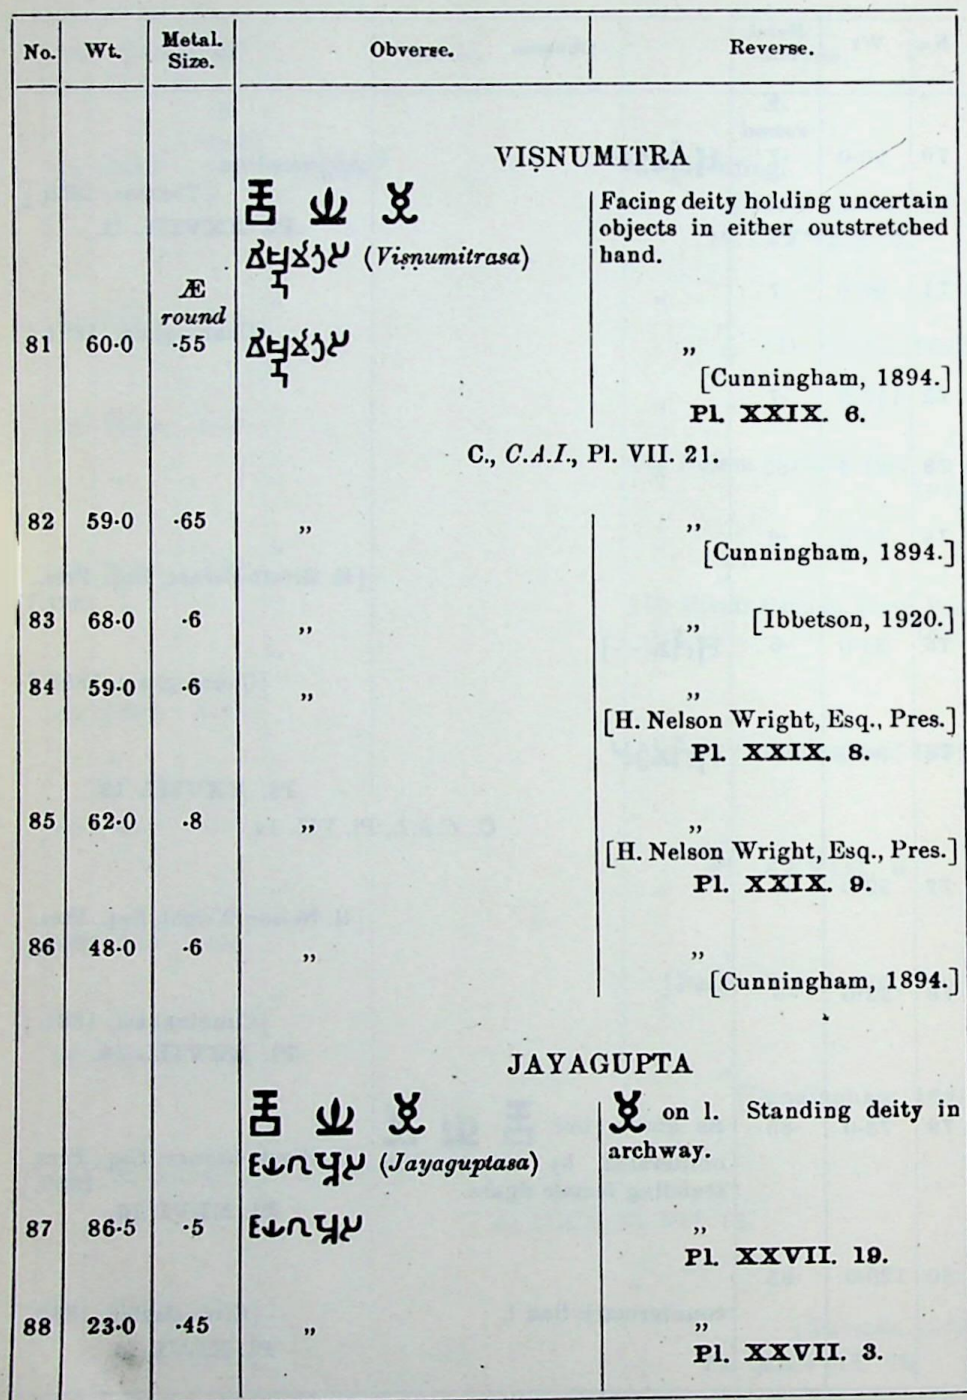 No. Wt. Metal. Size. Obverse. Reverse.
VIṢNUMITRA
(Viṣṇumitrasa)
Facing deity holding uncertain
objects in either outstretched
hand.
Æ
round
81 60·0 ·55 ,,
[Cunningham, 1894.]
Pl. XXIX. 6.
C., C.A.I., Pl. VII. 21.
82 59·0 ·65 ,, ,,
[Cunningham, 1894.]
83 68·0 ·6 ,, ,, [Ibbetson, 1920.]
84 59·0 ·6 ,, ,,
[H. Nelson Wright, Esq., Pres.]
Pl. XXIX. 8.
85 62·0 ·8 ,, ,,
[H. Nelson Wright, Esq., Pres.]
Pl. XXIX. 9.
86 48·0 ·6 ,, ,,
[Cunningham, 1894.]
JAYAGUPTA
𑀚𑀬𑀕𑀼𑀧𑁆𑀢𑀲 (Jayaguptasa)
on l. Standing deity in
archway.
87 86·5 ·5 𑀚𑀬𑀕𑀼𑀧𑁆𑀢𑀲 ,,
Pl. XXVII. 19.
88 23·0 ·45 ,, ,,
Pl. XXVII. 3.